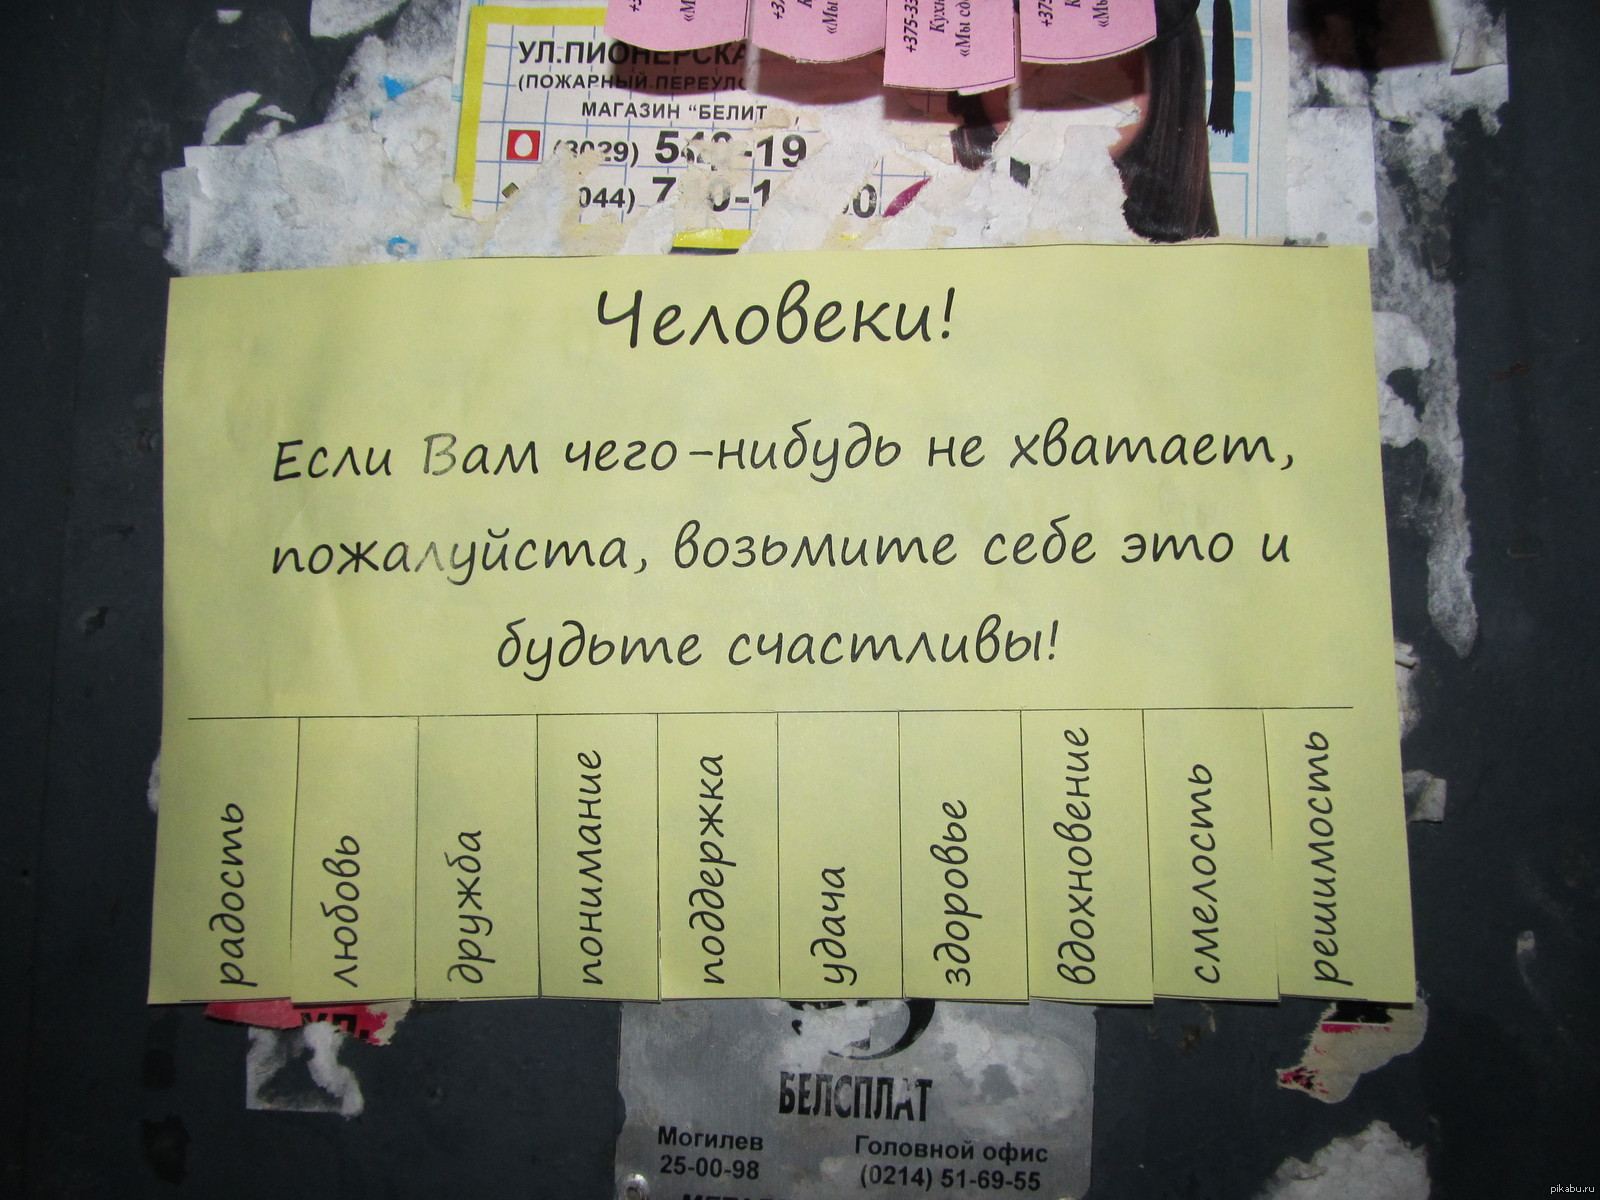 УЛ.ПИОНЕРСКА
(ПОЖАРНЫЙ ПЕРЕУЛ
МАГАЗИН "БЕЛИТ
-19
044)
+375-33
«Мы
Человеки!
Если Вам чего-нибудь не хватает,
пожалуйста, возьмите себе это и
будьте счастливы!
радость
любовь
дружба
понимание
поддержка
удача
здоровье
вдохновение
смелость
решимость
БЕЛСПЛАТ
Могилев
25-00-98
Головной офис
(0214) 51-69-55
pikabu.ru